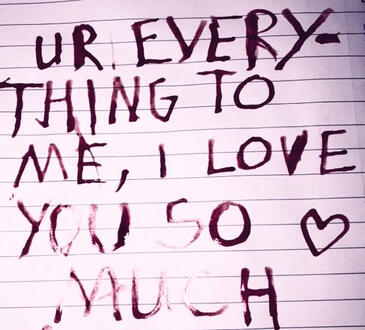 UR EVERY-
THING TO
ME, I LOVE
YOU SO ♡
MUCH